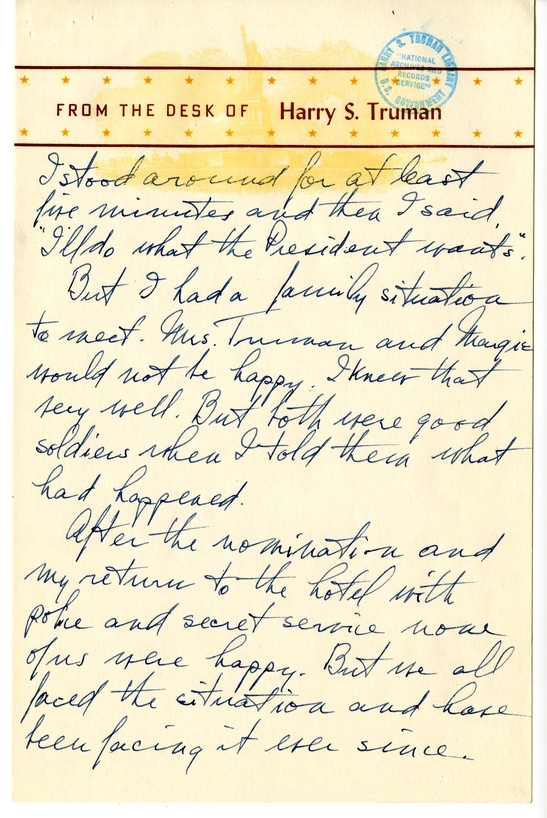 HARRY S. TRUMAN LIBRARY
"NATIONAL
ARCHIVES AND
RECORDS
SERVICE"
U.S. GOVERNMENT
FROM THE DESK OF Harry S. Truman
I stood around for at least
five minutes and then I said,
"I'll do what the President wants".
But I had a family situation
to meet. Mrs. Truman and Margie
would not be happy. I knew that
very well. But both were good
soldiers when I told them what
had happened.
After the nomination and
my return to the hotel with
police and secret service none
of us were happy. But we all
faced the situation and have
been facing it ever since.